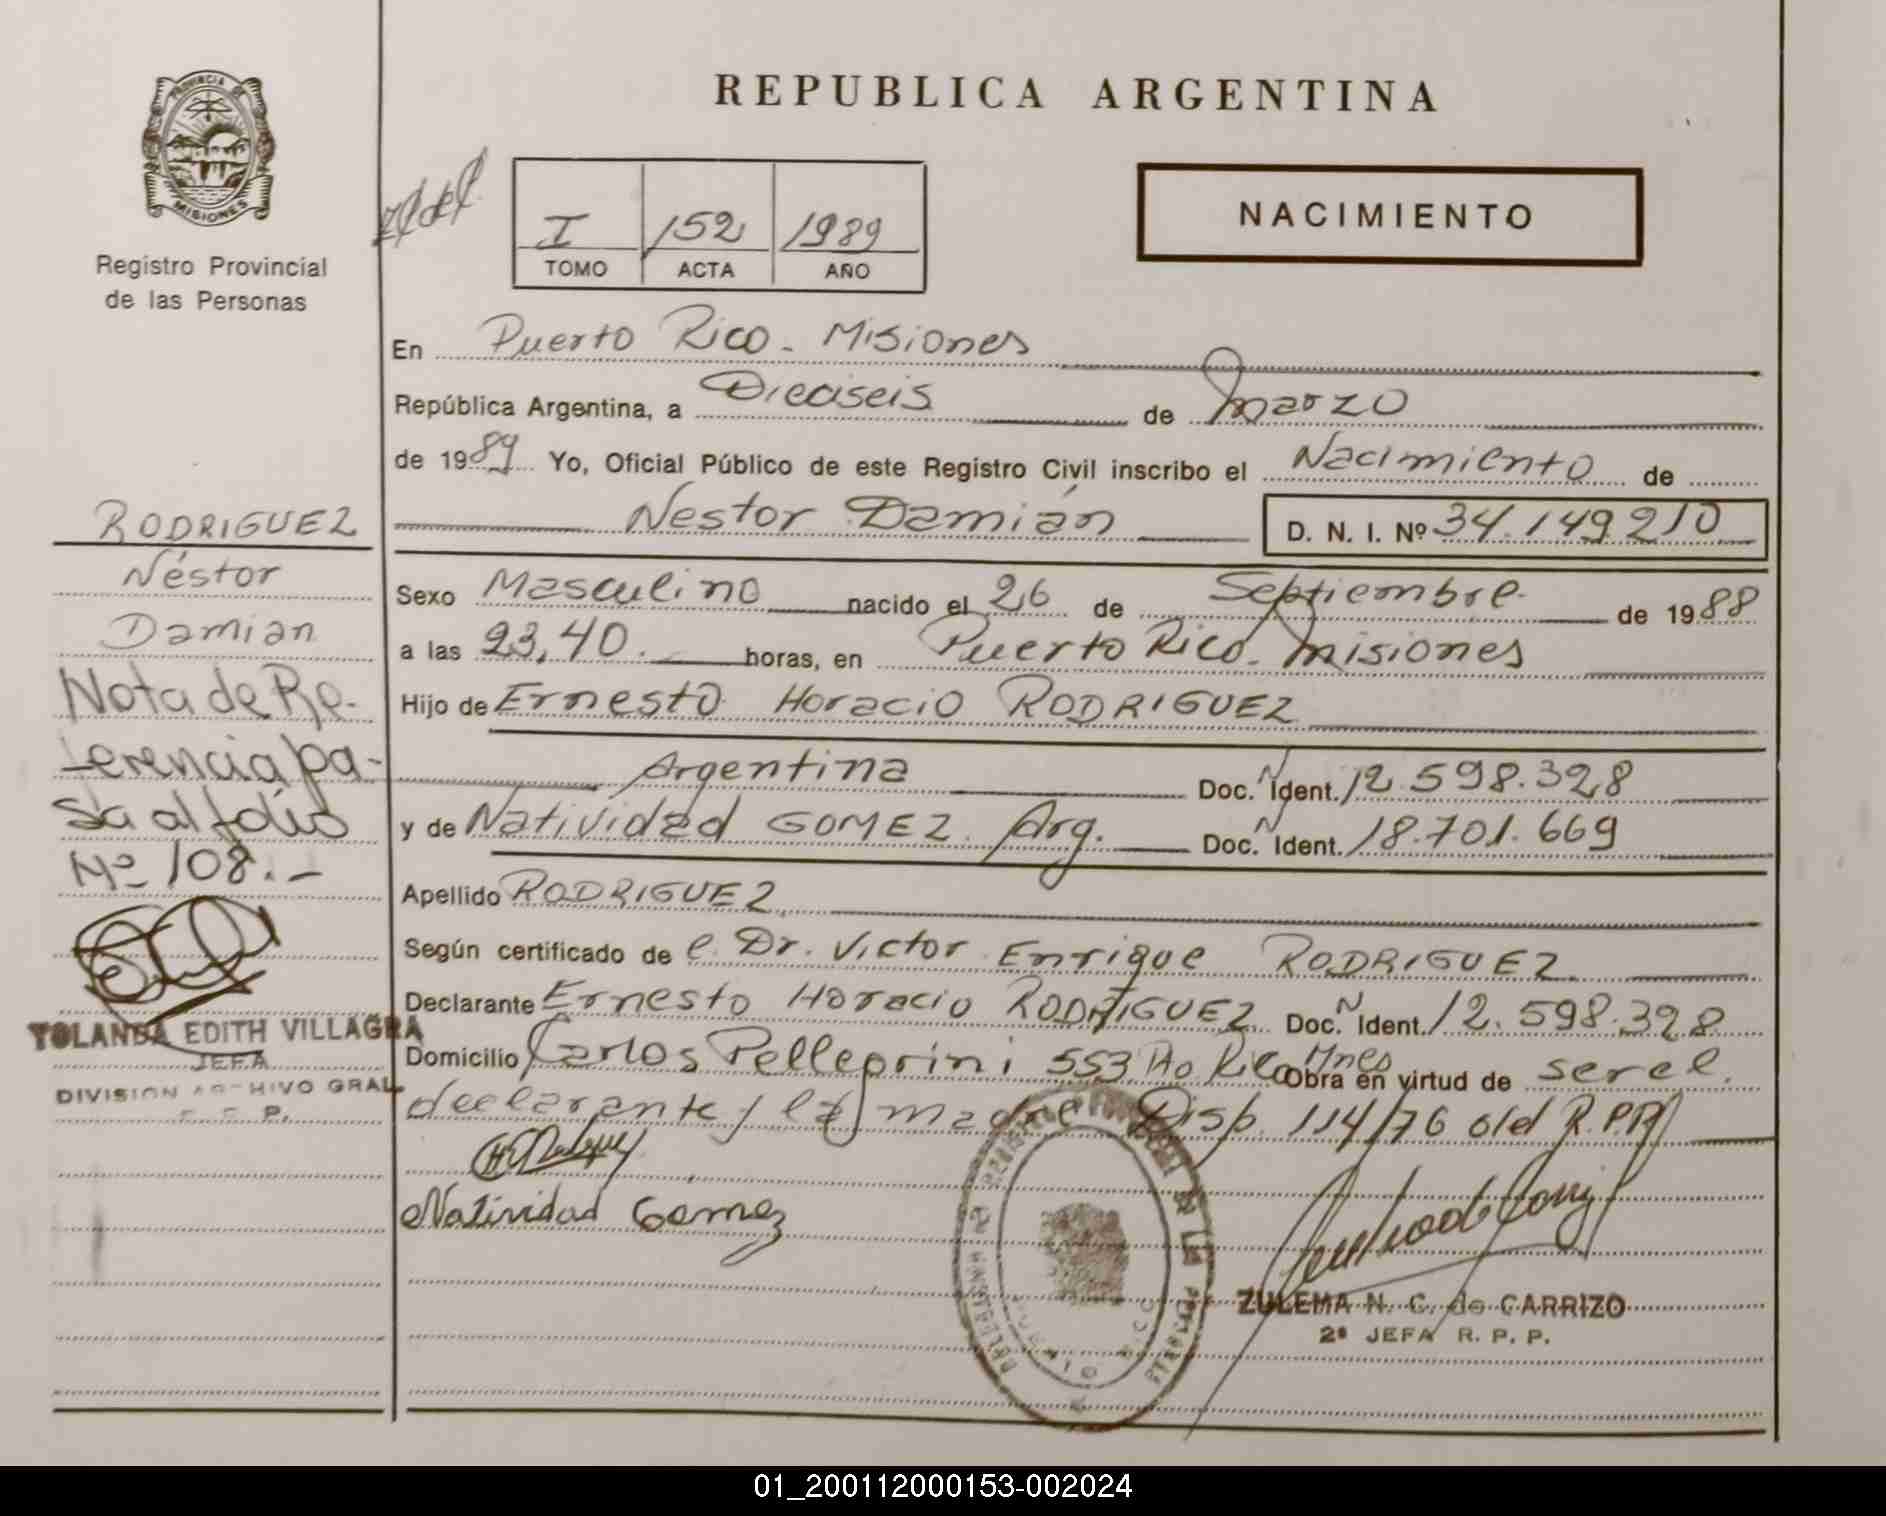 PROVINCIA DE
MISIONES
Registro Provincial
de las Personas
REPUBLICA ARGENTINA
I 152 1989
TOMO ACTA AÑO
NACIMIENTO
En Puerto Rico - Misiones
República Argentina, a Dieciseis de Marzo
de 1989 Yo, Oficial Público de este Registro Civil inscribo el Nacimiento de
Nestor Damián D. N. I. Nº 34.149.210
Sexo Masculino nacido el 26 de Septiembre de 1988
a las 23,40. horas, en Puerto Rico - Misiones
Hijo de Ernesto Horacio RODRIGUEZ
Argentina Doc. N Ident. 12.598.328
y de Natividad GOMEZ. Arg. Doc. N Ident. 18.701.669
Apellido RODRIGUEZ
Según certificado de l. Dr. Victor Enrique RODRIGUEZ
Declarante Ernesto Horacio RODRIGUEZ Doc. N Ident. 12.598.328
Domicilio Carlos Pellegrini 553 Pto Rico Mnes Obra en virtud de ser el
declarante y la madre Disp. 114/76 del R.P.P.
Natividad Gomez
ZULEMA N. C. de CARRIZO
2ª JEFA R. P. P.
RODRIGUEZ
Néstor
Damian
Nota de Re-
ferencia pa-
sa al folio
Nº 108.-
YOLANDA EDITH VILLAGRA
JEFA
DIVISION ARCHIVO GRAL
01_200112000153-002024